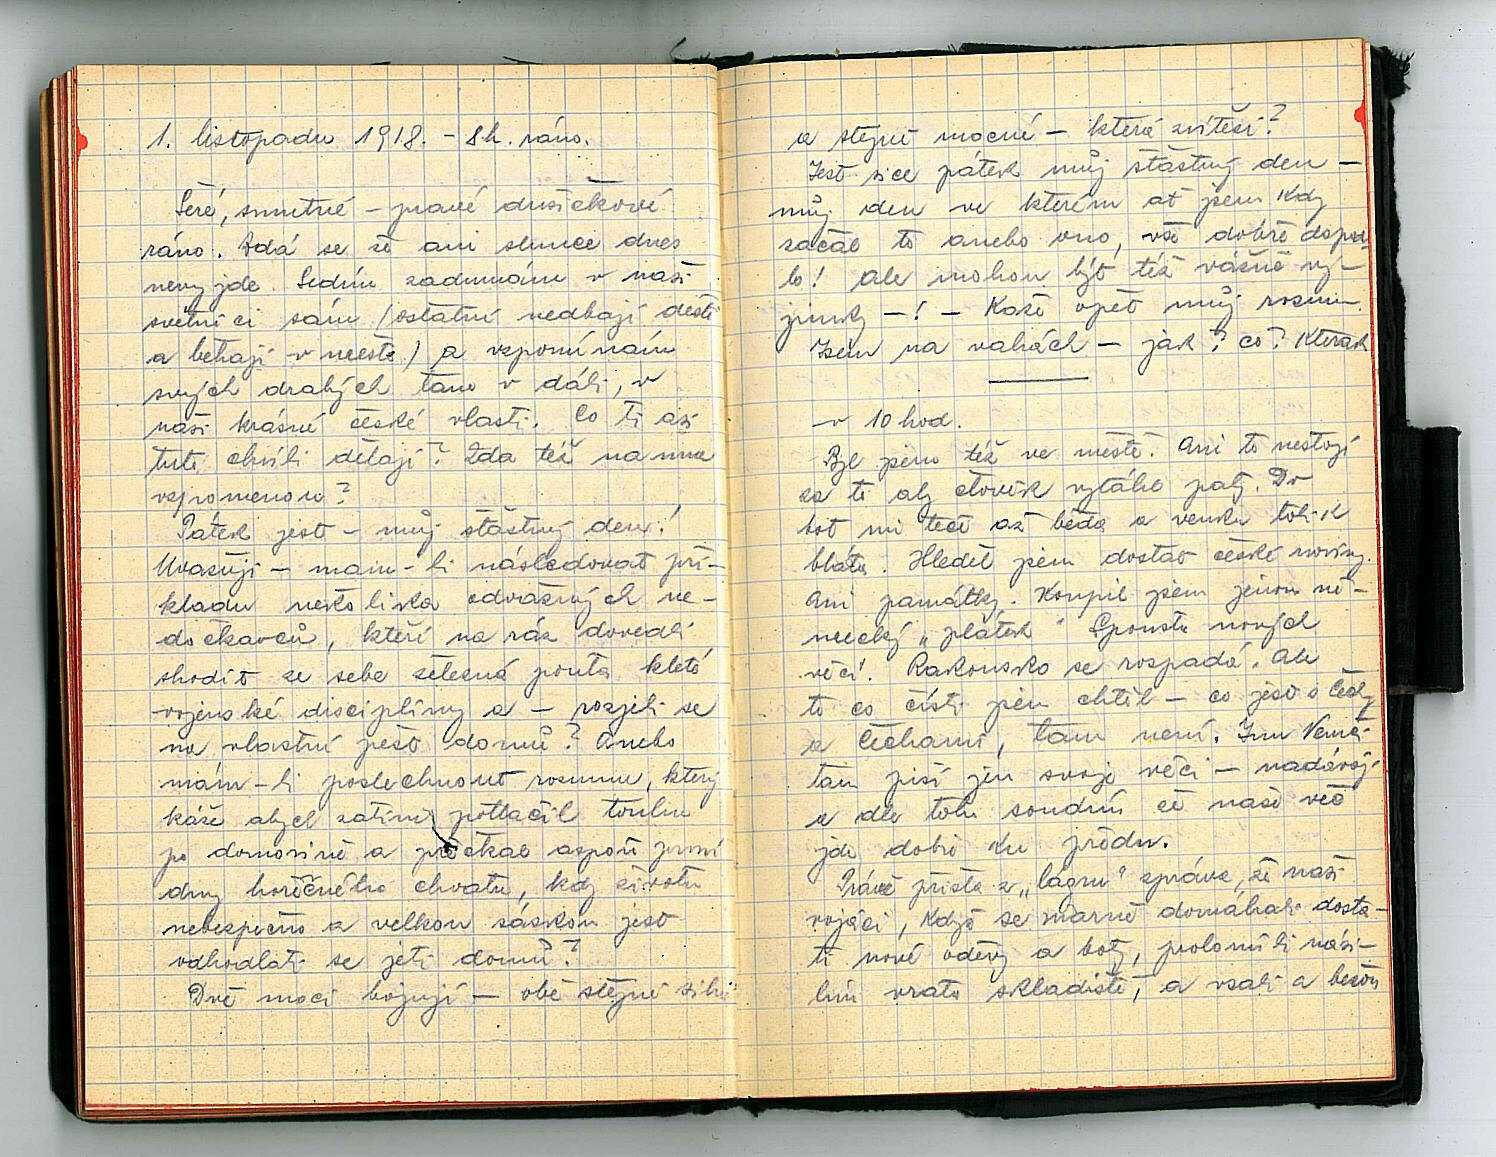 1. listopadu 1918. - 8h. ráno.
Šeré, smutné - pravé dušičkové
ráno. Zdá se že ani slunce dnes
nevyjde. Sedím zadumám v naší
světnici sám (ostatní nedbají deště
a běhají v městě.) a vzpomínám
svých drahých tam v dáli, v
naší krásné české vlasti. Co ti asi
tuto chvíli dělají? Zda též na mne
vzpomenou?
Pátek jest - můj šťastný den!
Uvažuji - mám-li následovat pří-
kladu několika odvážných ne-
dočkavců, kteří na ráz dovedli
shodit se sebe železná pouta kleté
vojenské disciplíny a - rozjeli se
na vlastní pěst domů? Anebo
mám-li poslechnout rozumu, který
káže abych zatím potlačil touhu
po domovině a přečkal aspoň první
dny horečného chvatu, kdy životu
nebezpečno a velkou sázkou jest
odhodlati se jeti domů?
Dvě moci bojují - obě stejně silné
a stejně mocné - která zvítězí?
Jest sice pátek můj šťastný den -
můj den ve kterém ať jsem kdy
začal to anebo ono, vše dobře dopad-
lo! Ale mohou být též vážné vý-
jimky -! - Káže opět můj rozum.
Jsem na vahách - jak? co? Kterak
v 10 hod.
Byl jsem též ve městě. Ani to nestojí
za to aby člověk vytáhl paty. Do
bot mi teče až běda a venku tolik
bláta. Hleděl jsem dostat české noviny.
Ani památky. Koupil jsem jenom ně-
mecký „plátek" Spousta nových
věcí! Rakousko se rozpadá. Ale
to co čísti jsem chtěl - co jest s Čechy
a Čechami, tam není. Jen Němci
tam píší jen svoje věci - nadávají
a dle toho soudím že naše věc
jde dobře ku předu.
Právě přišla z „lágru" zpráva, že naši
vojáci, když se marně domáhali dosta-
ti nové oděvy a boty, prolomili nási-
lím vrata skladiště, a vzali a